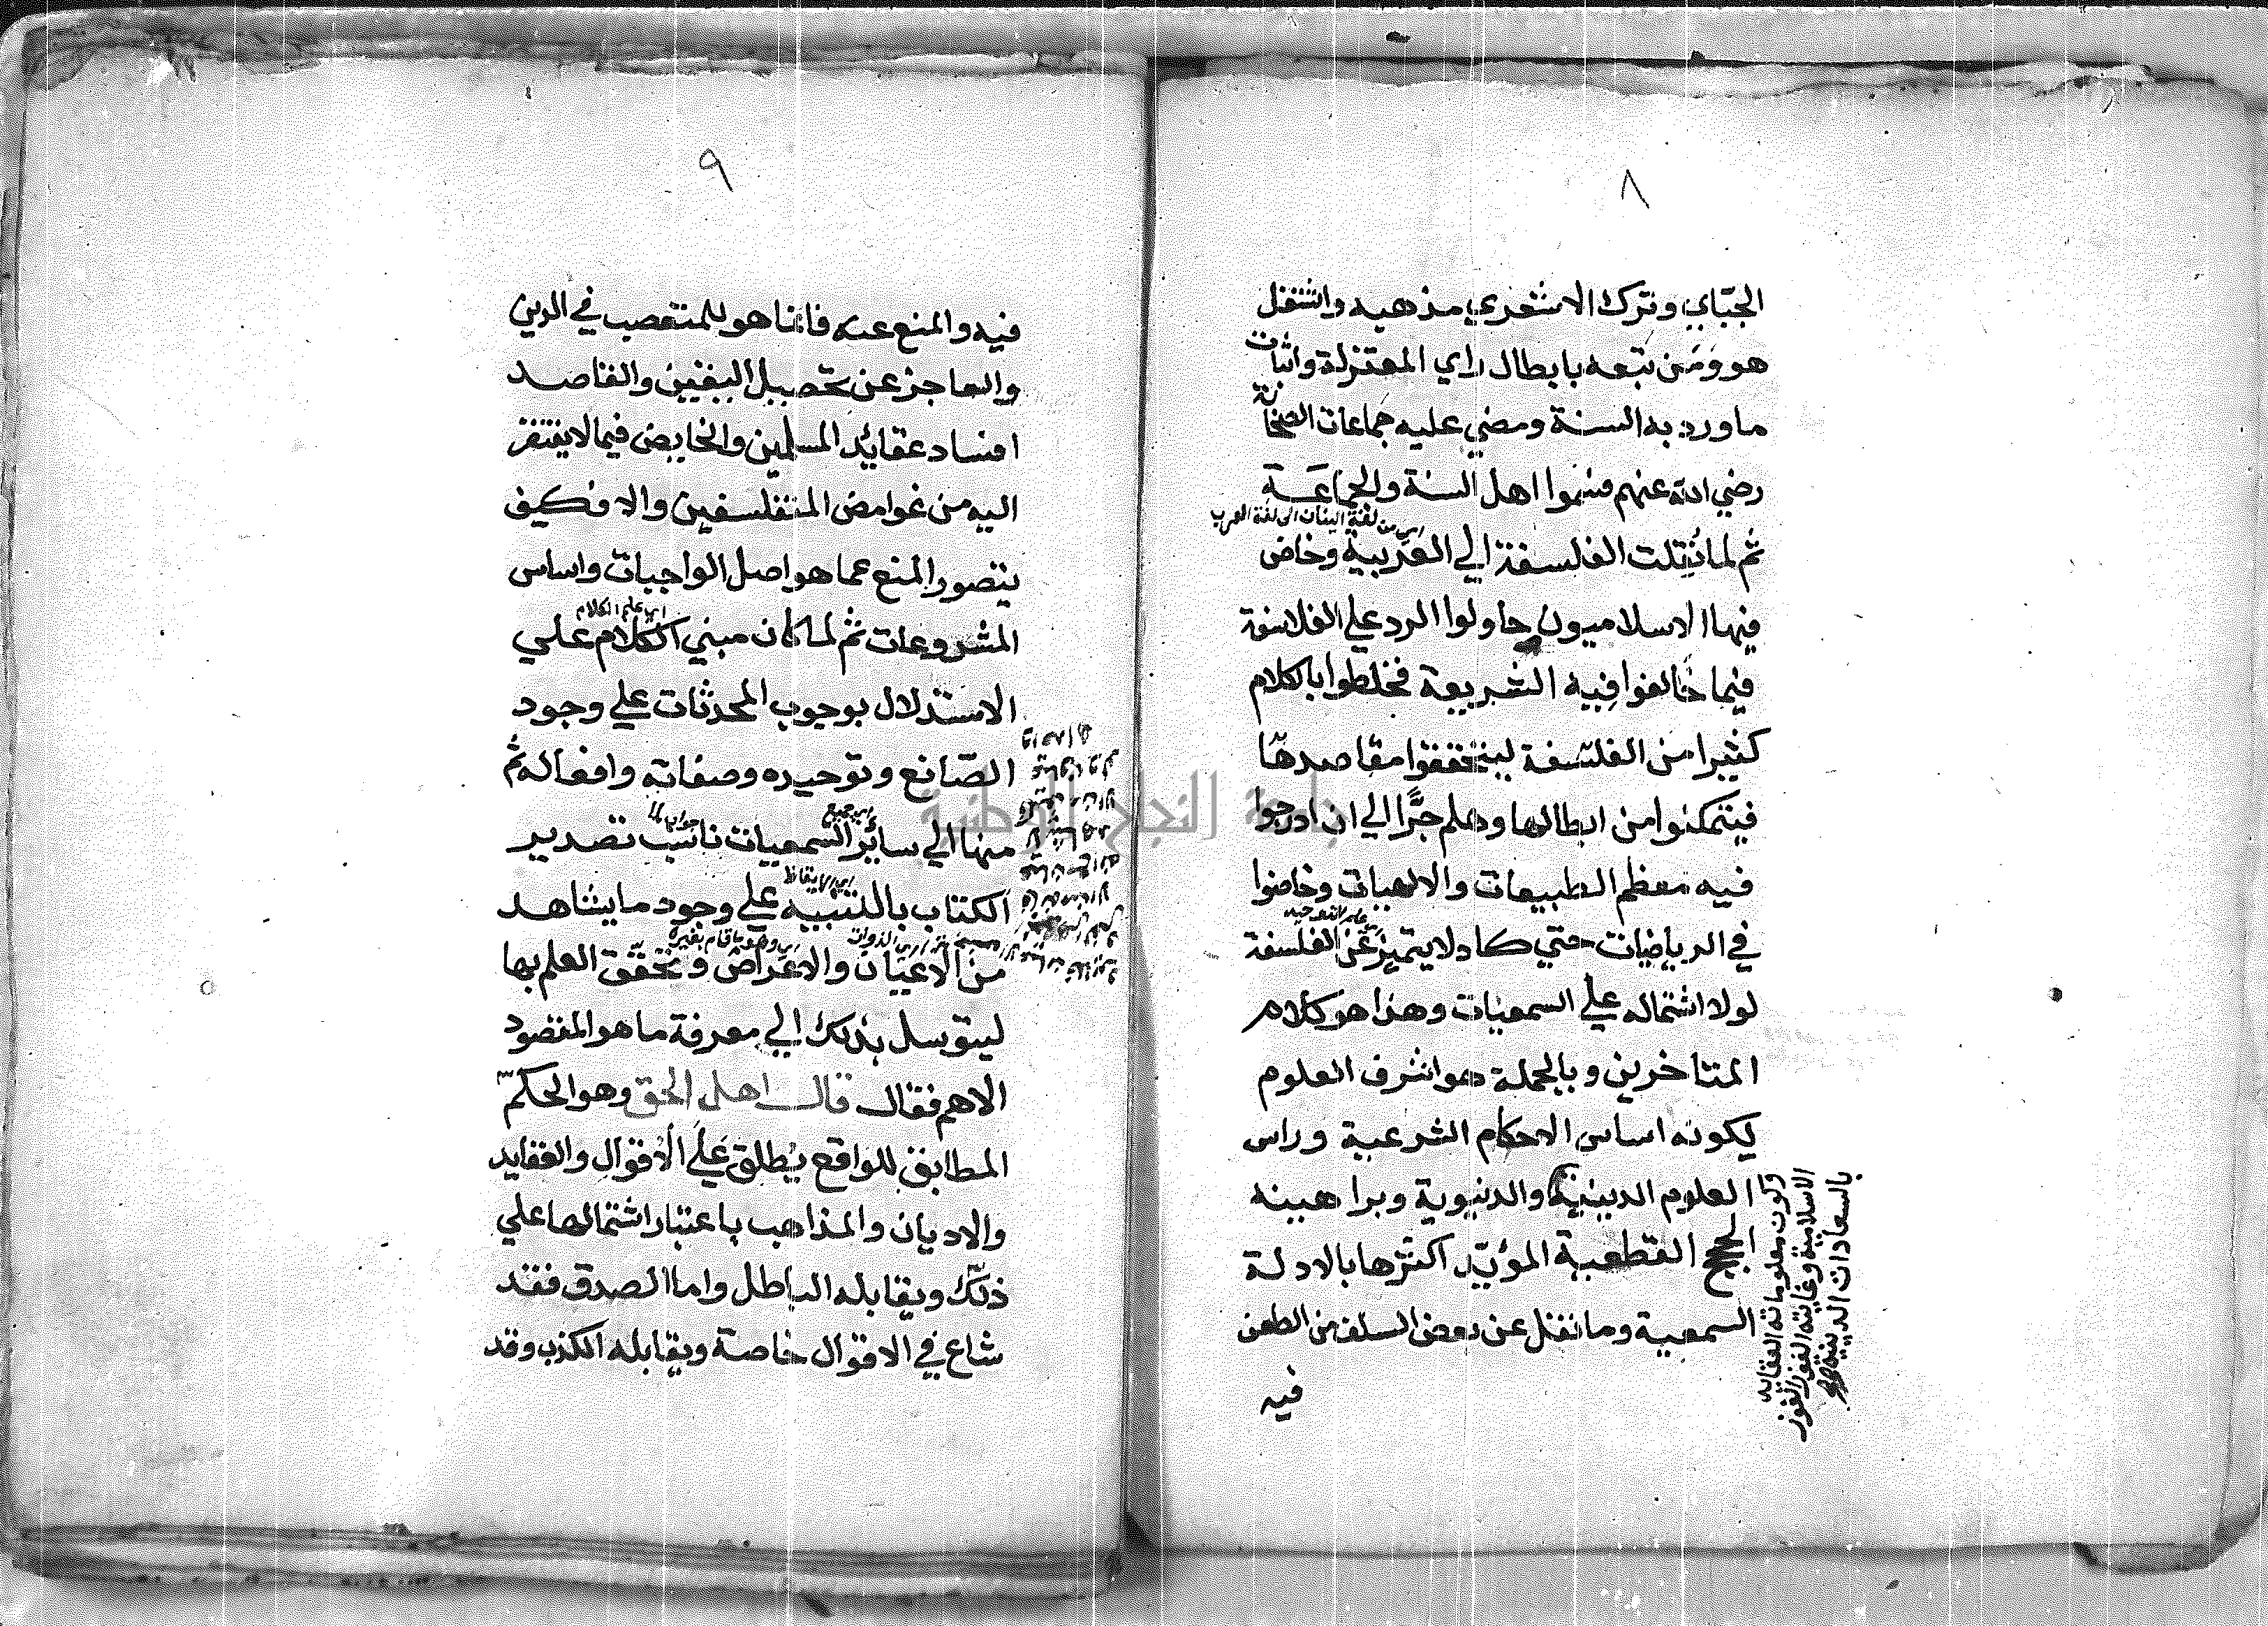 ٨
الجبّاي وترك الاشعري مذهبه واشتغل
هو ومَن تبعه بابطال راي المعتزلة واثبات
ما ورد به السنة ومضي عليه جماعات الصحابة
رضي الله عنهم فسموا اهل السنة والجماعَـة
اي من لغة اليونان الى لغة العرب
ثم لما نُقِلت الفلسفة الي العَرَبية وخاض
فيها الاسلاميون حاولوا الرد علي الفلاسفة
فيما خالفوا فِيه الشريعة فخلطوا بالكلام
كثيرا من الفلسفة ليتحققوا مقاصدها
فيتمكنوا من ابطالها وهلم جرًّا الي ان ادرجوا
فيه معظم الطبيعات والالهيات وخاضوا
علم التوحيد
في الرياضيات حتي كاد لا يتميز عَن الفلسفة
لولا اشتماله علي السمعيات وهذا هو كلام
المتاخرين وبالجملة هو اشرف العلوم
لكونه اساس الاحكام الشرعية وراس
العلوم الدينية والدنيوية وبراهينه
الحجج القطعية المؤيّد اكثرها بالادلة
السمعية وما نقل عن بعض السلف من الطعن
فيه
وكون معلوماته العقايد
الاسلامية وغايته الفوز
بالسعادات الدينية
٩
فيه والمنع عنه فانما هو للمتعصب في الدين
والعاجز عن تحصيل اليقين والقاصد
افساد عقائد المسلمين والخايض فيما لا يفتقر
اليه من غوامض المتفلسفين والا فكيف
يتصور المنع عما هو اصل الواجبات واساس
اي علم الكلام
المشروعات ثم لما كان مبني الكلام علي
الاستدلال بوجوب المحدثات علي وجود
الصّانع وتوحيده وصفاته وافعاله ثم
اي جميع جواب لما
منها الي سائر السمعيات ناسب تصدير
اي الايقاظ
الكتاب بالتنبيه علي وجود ما يشاهد
اي الذوات اي وهو ما قام بغيره
من الاعيان والاعراض وتحقّق العلم بها
ليتوسل بذلك الي معرفة ما هو المقصود
الاهم فقال قال اهل الحق وهو الحكم
المطابق للواقع يُطلق عَلَي الاقوال والعقايد
والاديان والمذاهب باعتبار اشتمالها علي
ذلك ويقابله الباطل واما الصدق فقد
شاع في الاقوال خاصة ويقابله الكذب وقد
جامعة النجاح الوطنية